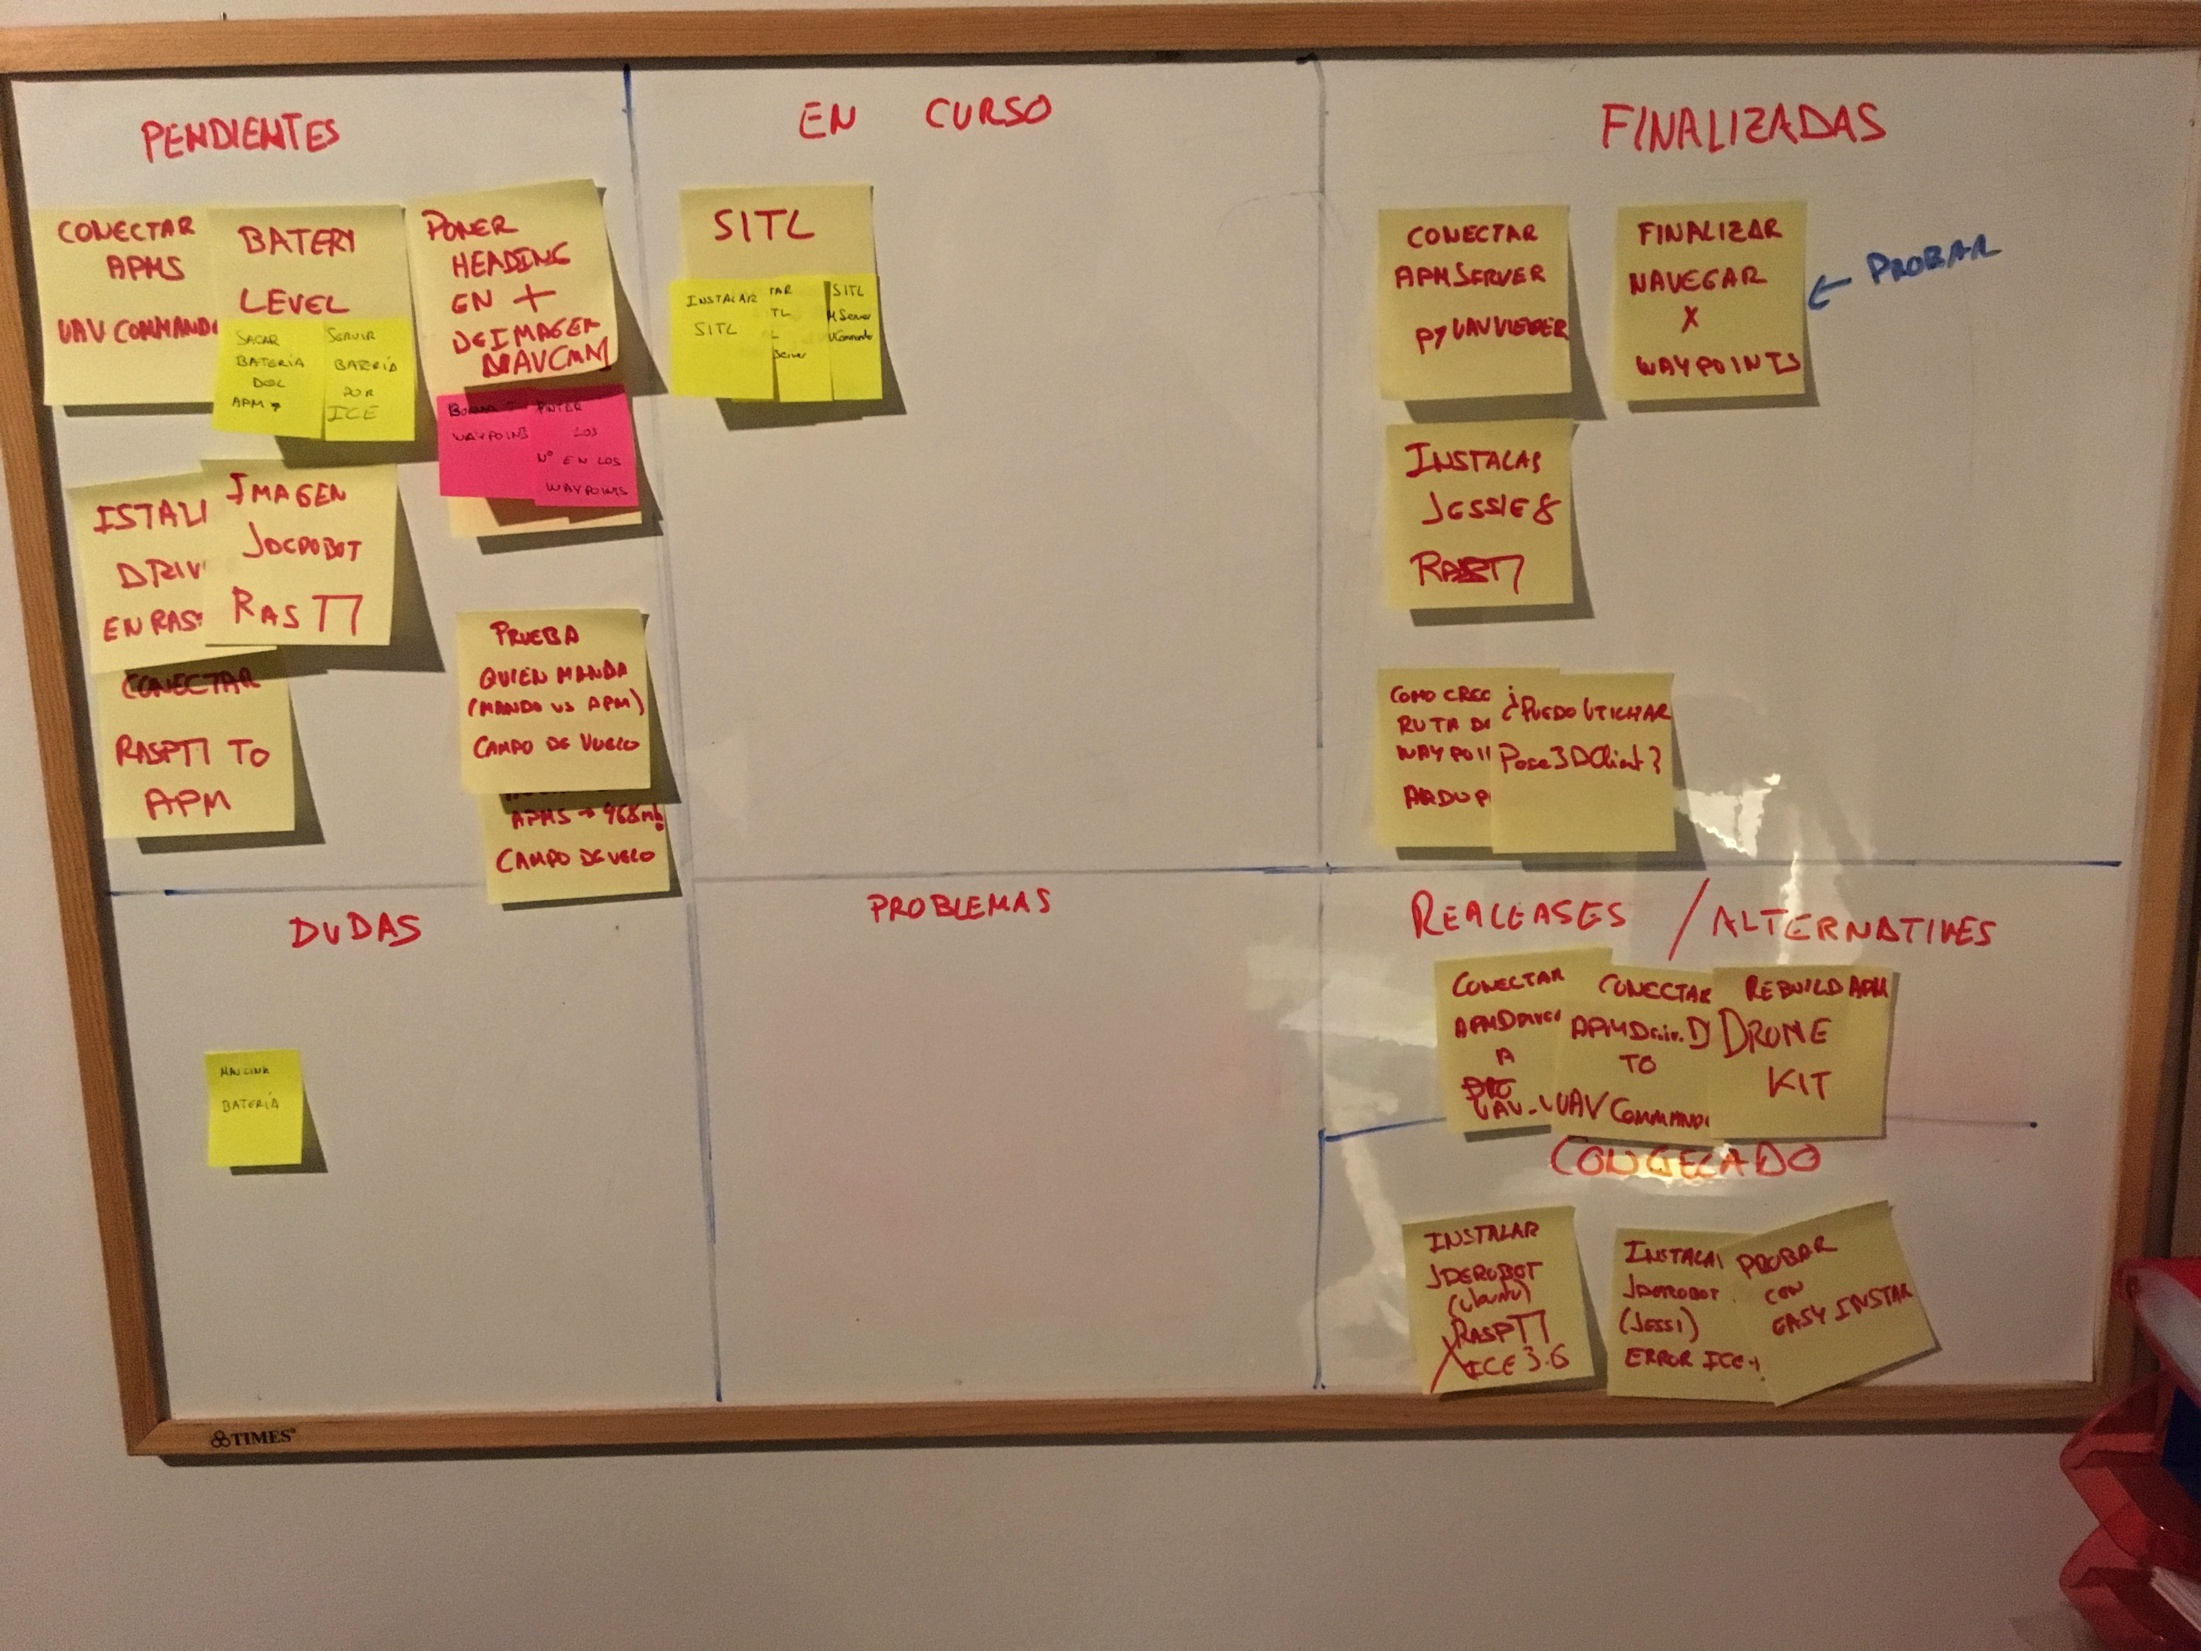 PENDIENTES
CONECTAR
APMS
UAV COMMANDO
BATERY
LEVEL
SACAR
BATERÍA
DEL
APM
SERVIR
BATERÍA
POR
ICE
PONER
HEADING
EN +
DE IMAGEN
WAYPOINTS
PONER
LOS
Nº EN LOS
WAYPOINTS
ISTALI
DRIV
EN RAS
IMAGEN
JDEROBOT
RASPI
CONECTAR
RASPI TO
APM
PRUEBA
QUIEN MANDA
(MANDO VS APM)
CAMPO DE VUELO
APMS → 468mh
CAMPO DE VUELO
EN CURSO
SITL
INSTALAR
SITL
TAR
TL
L
Server
SITL
MServer
UCommando
FINALIZADAS
CONECTAR
APMSERVER
PYUAVVIEWER
FINALIZAR
NAVEGAR
X
WAYPOINTS
← PROBAR
INSTALAR
JESSIE 8
RASPI
COMO CREO
RUTA DE
WAYPOIN
ARDUP
¿PUEDO UTILIZAR
Pose3DClient?
DUDAS
MAVLINK
BATERÍA
PROBLEMAS
REALEASES / ALTERNATIVES
CONECTAR
APMDriver
A
UAV-V
CONECTAR
APMDriv.
TO
UAV COMMAND
REBUILD APM
DRONE
KIT
CONGELADO
INSTALAR
JDEROBOT
(Ubuntu)
RASPI
ICE 3.6
INSTALA
JDEROBOT
(JESSI)
ERROR ICE
PROBAR
CON
EASY INSTAR
TIMES